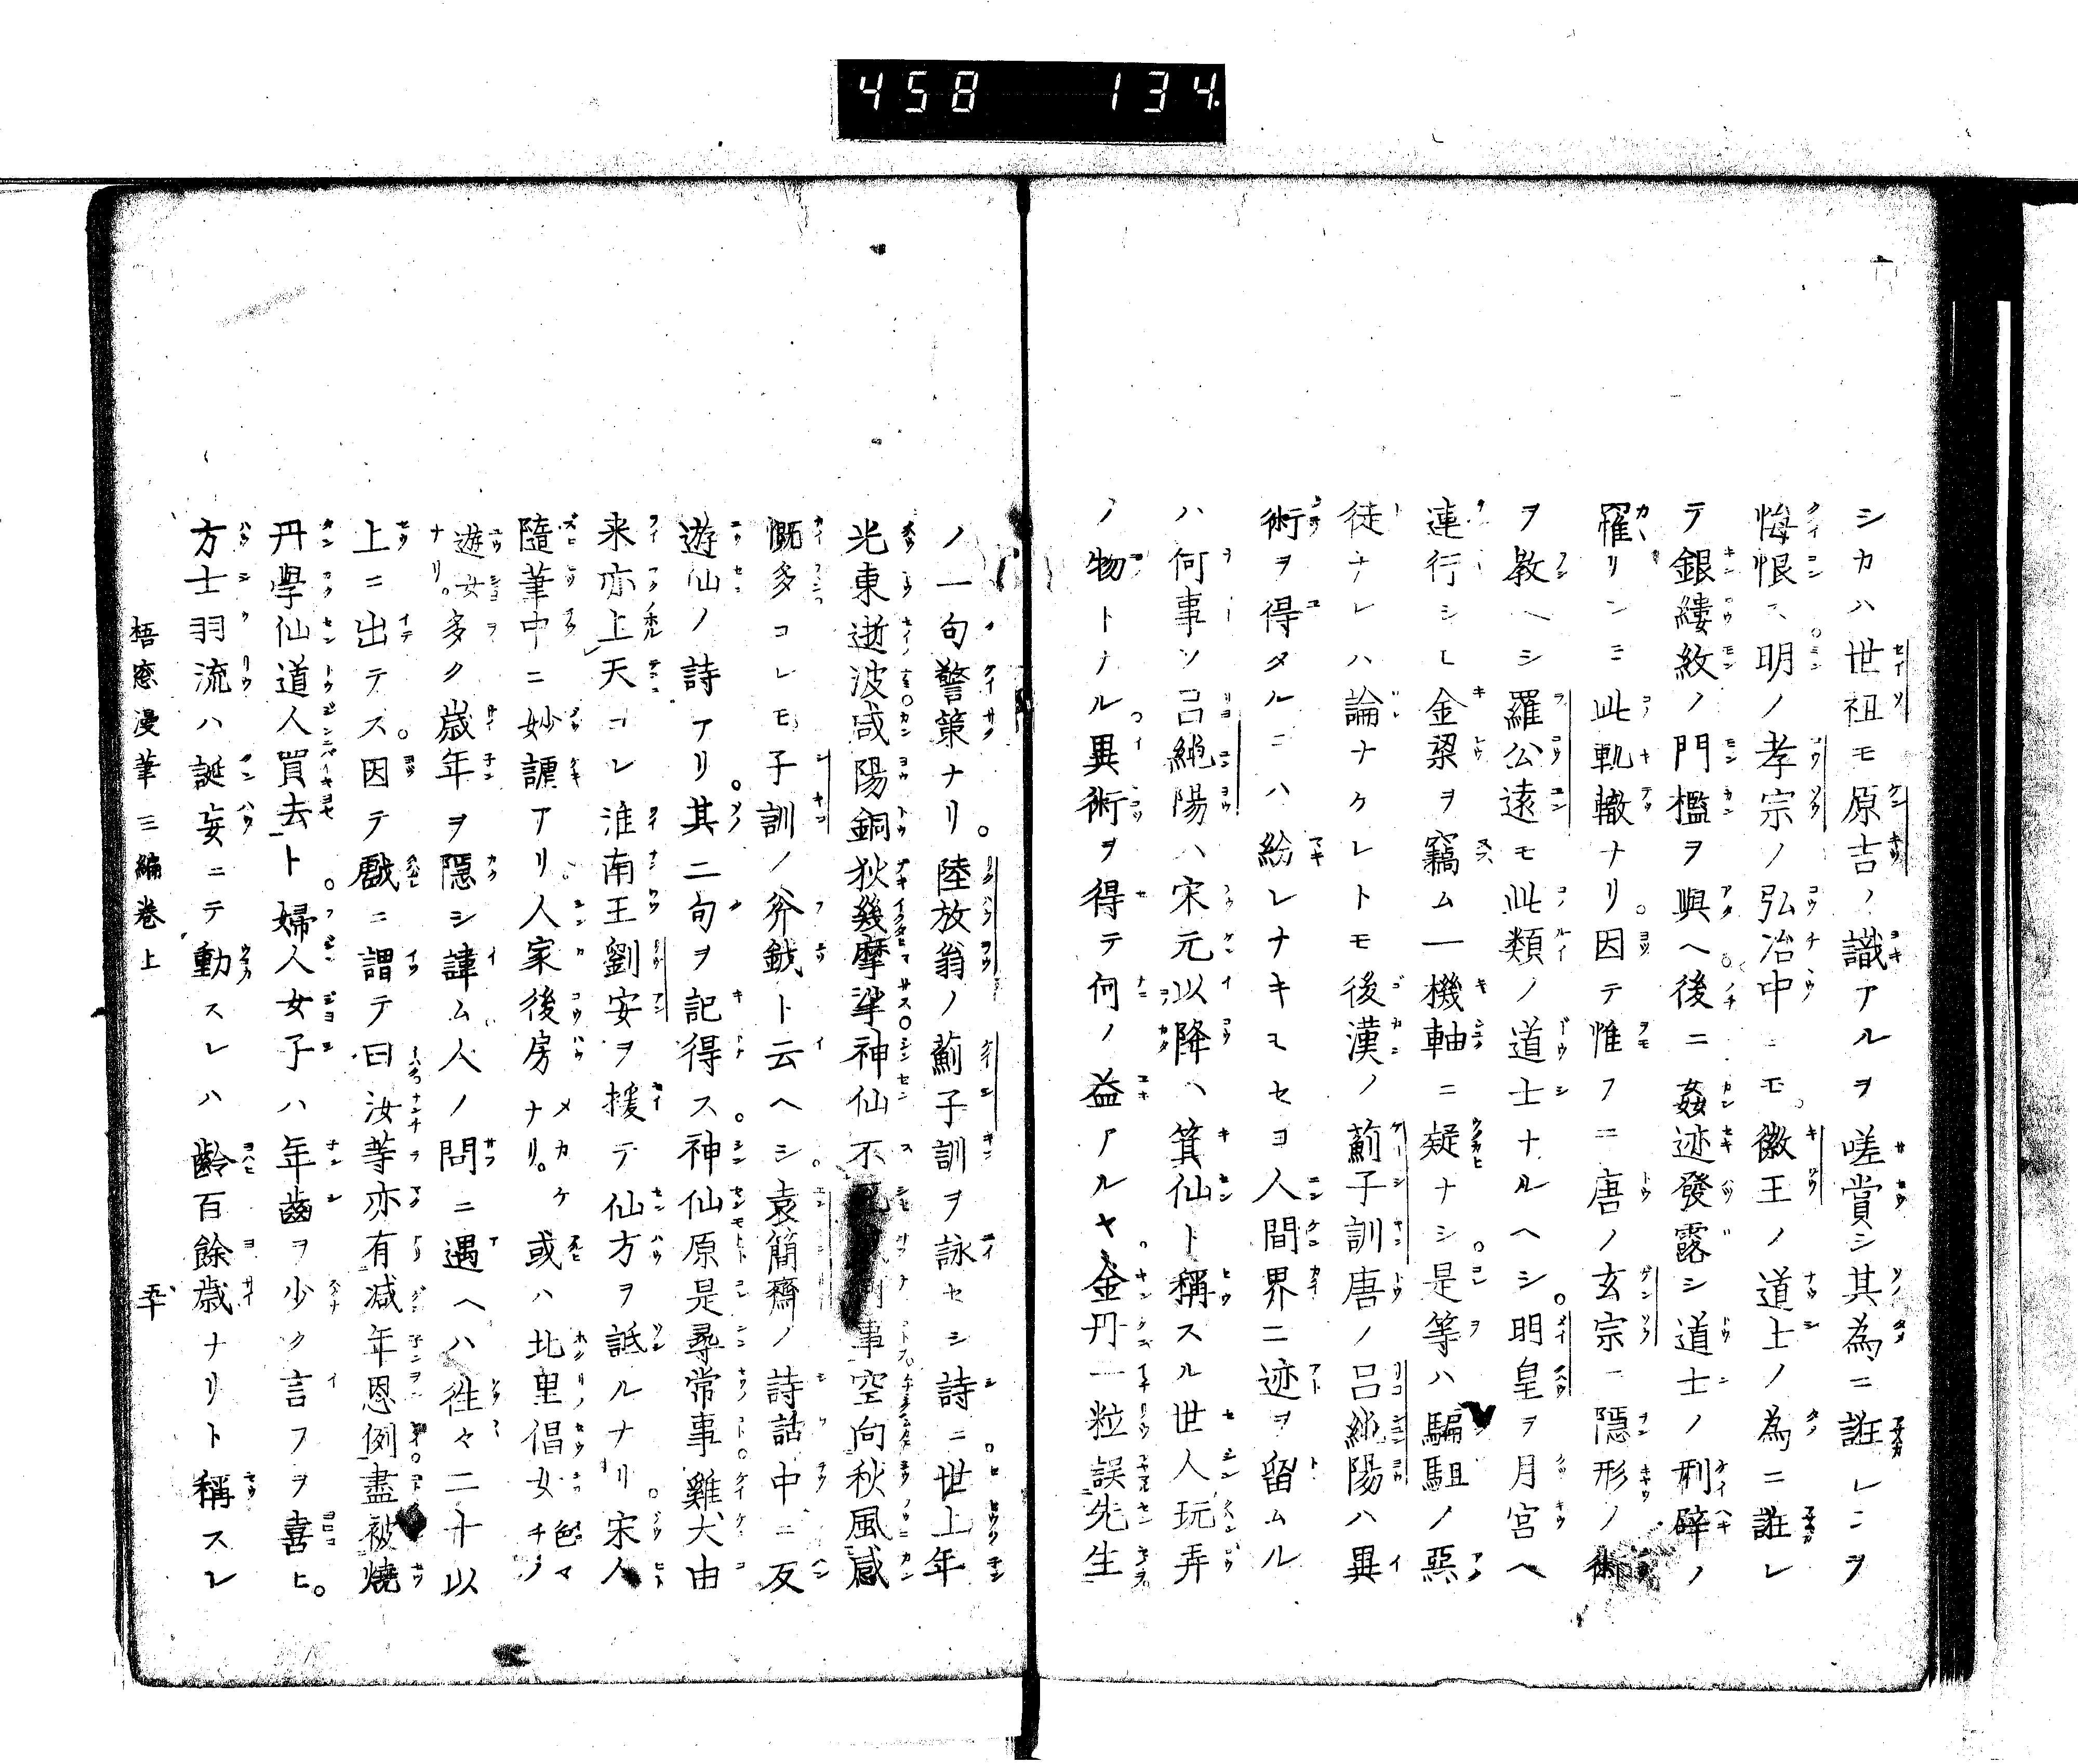 458 134
シカハ世祖モ原吉ノ識アルヲ嗟賞シ其為ニ誑レシヲ
悔恨ス明ノ孝宗ノ弘治中ニモ徽王ノ道士ノ為ニ誑レ
テ銀縷紋ノ門檻ヲ與ヘ後ニ姦迹發露シ道士ノ刑辟ノ
罹リシミ此軌轍ナリ。因テ惟フニ唐ノ玄宗ニ隱形ノ術
ヲ教ヘシ羅公遠モ此類ノ道士ナルヘシ。明皇ヲ月宮ヘ
連行シヒ金梁ヲ竊ム一機軸ニ疑ナシ。是等ハ騙駔ノ惡
徒ナレハ論ナケレトモ後漢ノ薊子訓唐ノ呂純陽ハ異
術ヲ得タルニハ紛レナキモセヨ人間界ニ迹ヲ留ムル
ハ何事ソ呂純陽ハ宋元以降ハ箕仙ト稱スル世人玩弄
ノ物トナル。異術ヲ得テ何ノ益アルヤ。金丹一粒誤先生
ノ一句警策ナリ。陸放翁ノ薊子訓ヲ詠セシ詩ニ。世上年
光東逝波咸陽銅狄幾摩挲神仙不事空向秋風感
慨多コレモ子訓ノ斧鉞ト云ヘシ。袁簡齋ノ詩話中ニ反
遊仙ノ詩アリ。其二句ヲ記得ス。神仙原是尋常事雞犬由
来亦上天コレ淮南王劉安ヲ援テ仙方ヲ詆ルナリ。宋人
隨筆中ニ妙謔アリ。人家後房メカケナリ。或ハ北里倡女色マチノ
遊女ナリ。多ク歳年ヲ隱シ諱ム人ノ問ニ遇ヘハ徃々二十以
上ニ出テス。因テ戲ニ謂テ曰汝等亦有減年恩例盡被燒
丹學仙道人買去ト。婦人女子ハ年齒ヲ少ク言フヲ喜ヒ。
方士羽流ハ誕妄ニテ動スレハ齡百餘歳ナリト稱スレ
梧窓漫筆三編卷上